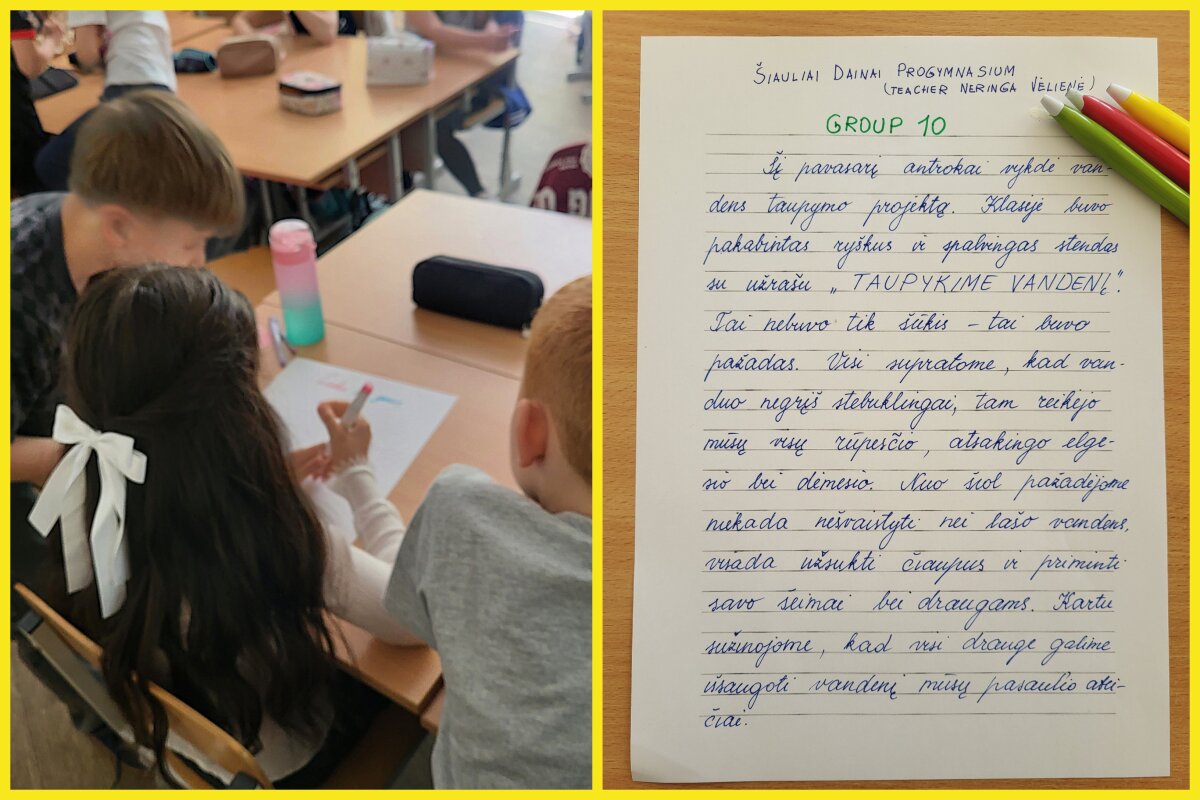 ŠIAULIAI DAINAI PROGYMNASIUM
(TEACHER NERINGA VĖLIENĖ)
GROUP 10
Šį pavasarį antrokai vykdė van-
dens taupymo projektą. Klasėje buvo
pakabintas ryškus ir spalvingas stendas
su užrašu „TAUPYKIME VANDENĮ".
Tai nebuvo tik šūkis – tai buvo
pažadas. Visi supratome, kad van-
duo negrįš stebuklingai, tam reikėjo
mūsų visų rūpesčio, atsakingo elge-
sio bei dėmesio. Nuo šiol pažadėjome
niekada nešvaistyti nei lašo vandens,
visada užsukti čiaupus ir priminti
savo šeimai bei draugams. Kartu
sužinojome, kad visi drauge galime
išsaugoti vandenį mūsų pasaulio atei-
čiai.